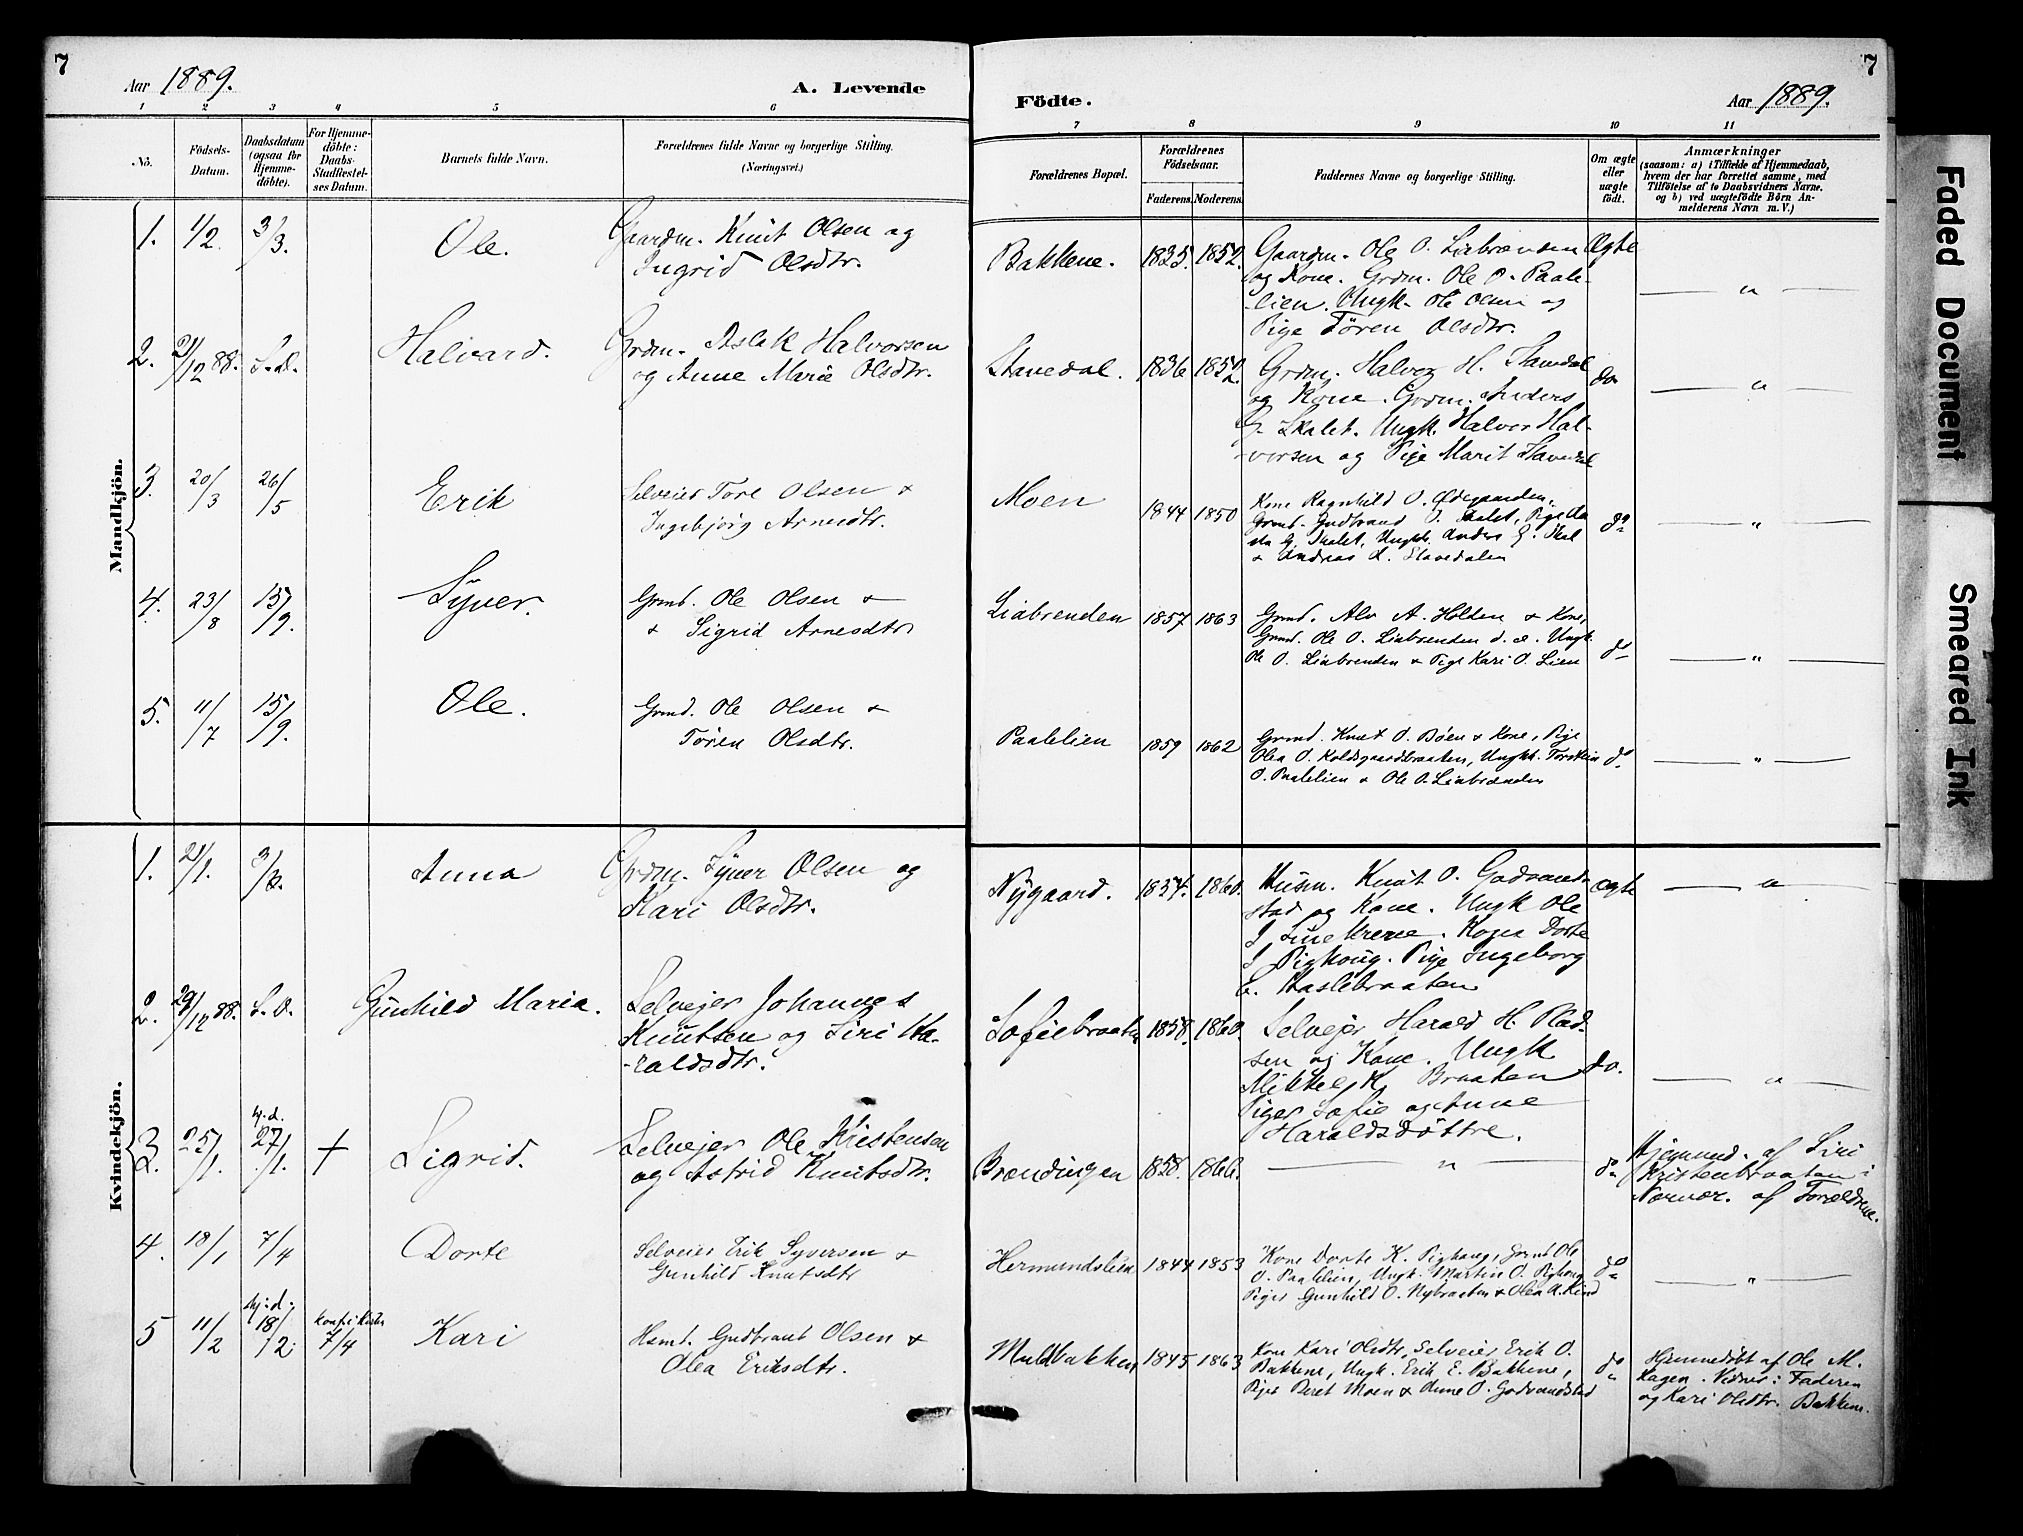 7
Aar 1889.
A. Levende
Födte.
Aar 1889.
7
1 2 3 4 5 6 7 8 9 10 11
No.
Födsels-
Datum.
Daabsdatum
(ogsaa for
Hjemme-
döbte).
For Hjemme-
döbte:
Daabs-
Stadfæstel-
ses Datum.
Barnets fulde Navn.
Forældrenes fulde Navne og borgerlige Stilling.
(Næringsvei.)
Forældrenes Bopæl.
Forældrenes
Födselsaar.
Faderens. Moderens.
Faddernes Navne og borgerlige Stilling.
Om ægte
eller
uægte
født.
Anmærkninger
(saasom: a) i Tilfælde af Hjemmedaab,
hvem der har forrettet samme, med
Tilföielse af to Daabsvidners Navne.
og b) ved uægtefødte Börn An-
melderens Navn m. V.)
Mandkjön.
1. 1/2 3/3. Ole.
Gaardm. Knut Olsen og
Ingrid Olsdtr.
Bakkene. 1825. 1852.
Gaardm. Ole O. Liabrænden
og Kone. Grdm. Ole O. Paale-
lien. Ungk. Ole Olsen og
Pige Tören Olsdtr.
Ægte
— " —
2. 21/12 88. S. d. Halvard.
Grdm. Aslak Halvorsen
og Anne Marie Olsdtr.
Stavedal. 1836 1852.
Grdm. Halvor H. Stavedal
og Kone. Grdm. Anders
G. Skalet. Ungk. Halvor Hal-
vorsen og Pige Marit Stavedal
do
— " —
3. 20/3 26/5 Erik
Selveier Tore Olsen &
Ingebjörg Arnesdtr.
Moen 1844 1850
Kone Ragnhild O. Ødegaarden,
Grmd. Gudbrand O. Skalet, Pige
G. Skalet, Ungk. Anders G. Skal
& Andreas A. Stavedalen
do
— " —
4. 23/8 15/9. Syver.
Grmd. Ole Olsen &
& Sigrid Arnesdtr
Liabrenden 1857 1863
Grmd. Alv A. Holden & Kone,
Grmd. Ole O. Liabrenden d. æ. Ungk.
Ole O. Liabrenden & Pige Kari O. Lien
do
— " —
5. 11/7 15/9. Ole.
Grmd. Ole Olsen &
Tören Olsdtr.
Paalelien 1859 1862
Grmd. Knut O. Böen & Kone, Pige
Olea O. Koldsgaardbraaten, Ungk. Torstein
O. Paalelien & Ole O. Liabrænden
do
— " —
Kvindekjön.
1. 21/1. 3/3. Anna
Grdm. Syver Olsen og
Kari Olsdtr.
Nygaard. 1854. 1860.
Husm. Knut O. Godvand-
stad og Kone. Ungk Ole
Kone Dorte
Pighoug. Pige Ingeborg
E. Haslebraaten
Ægte
— " —
2. 29/12 88. S. D. Gunhild Maria.
Selvejer Johannes
Knutsen og Siri Ha-
-raldsdtr.
Sofiebraaten 1858. 1860.
Selvejer Harald H. Plad-
sen og Kone. Ungk
Mikkel K. Braaten
Piger Sofie og Anne
Haraldsdöttre.
do.
— " —
3. 25/1. hj. d. 27/1. † Sigrid.
Selvejer Ole Kristensen
og Astrid Knutsdtr.
Brændingen 1858. 1866.
— " —
do
Hjemmed. af Siri
Kristenbraaten i
Nærvær. af Forældrene.
4. 18/1 7/4 Dorte
Selveier Erik Syversen &
Gunhild Knutsdtr
Hermundslien 1844 1853
Kone Dorte K. Pighaug, Grmd Ole
O. Paalelien, Ungk. Martin O. Pighaug
Piger Gunhild O. Nybraaten & Olea A. Lind
do
— " —
5 11/2 hj: d: 18/2. konf. i Kirken 7/4 Kari
Hsmd. Gudbrand Olsen &
Olea Eriksdtr.
Muldbakken 1845 1863
Kone Kari Olsdtr, Selveier Erik O.
Bakkene, Ungk. Erik E. Bakkene,
Piger Beret Moen & Anne O. Godvandstad
do
Hjemmedøbt af Ole M.
Hagen. Vidner: Faderen
og Kari Olsdtr. Bakkene.
Faded Document
Smeared Ink